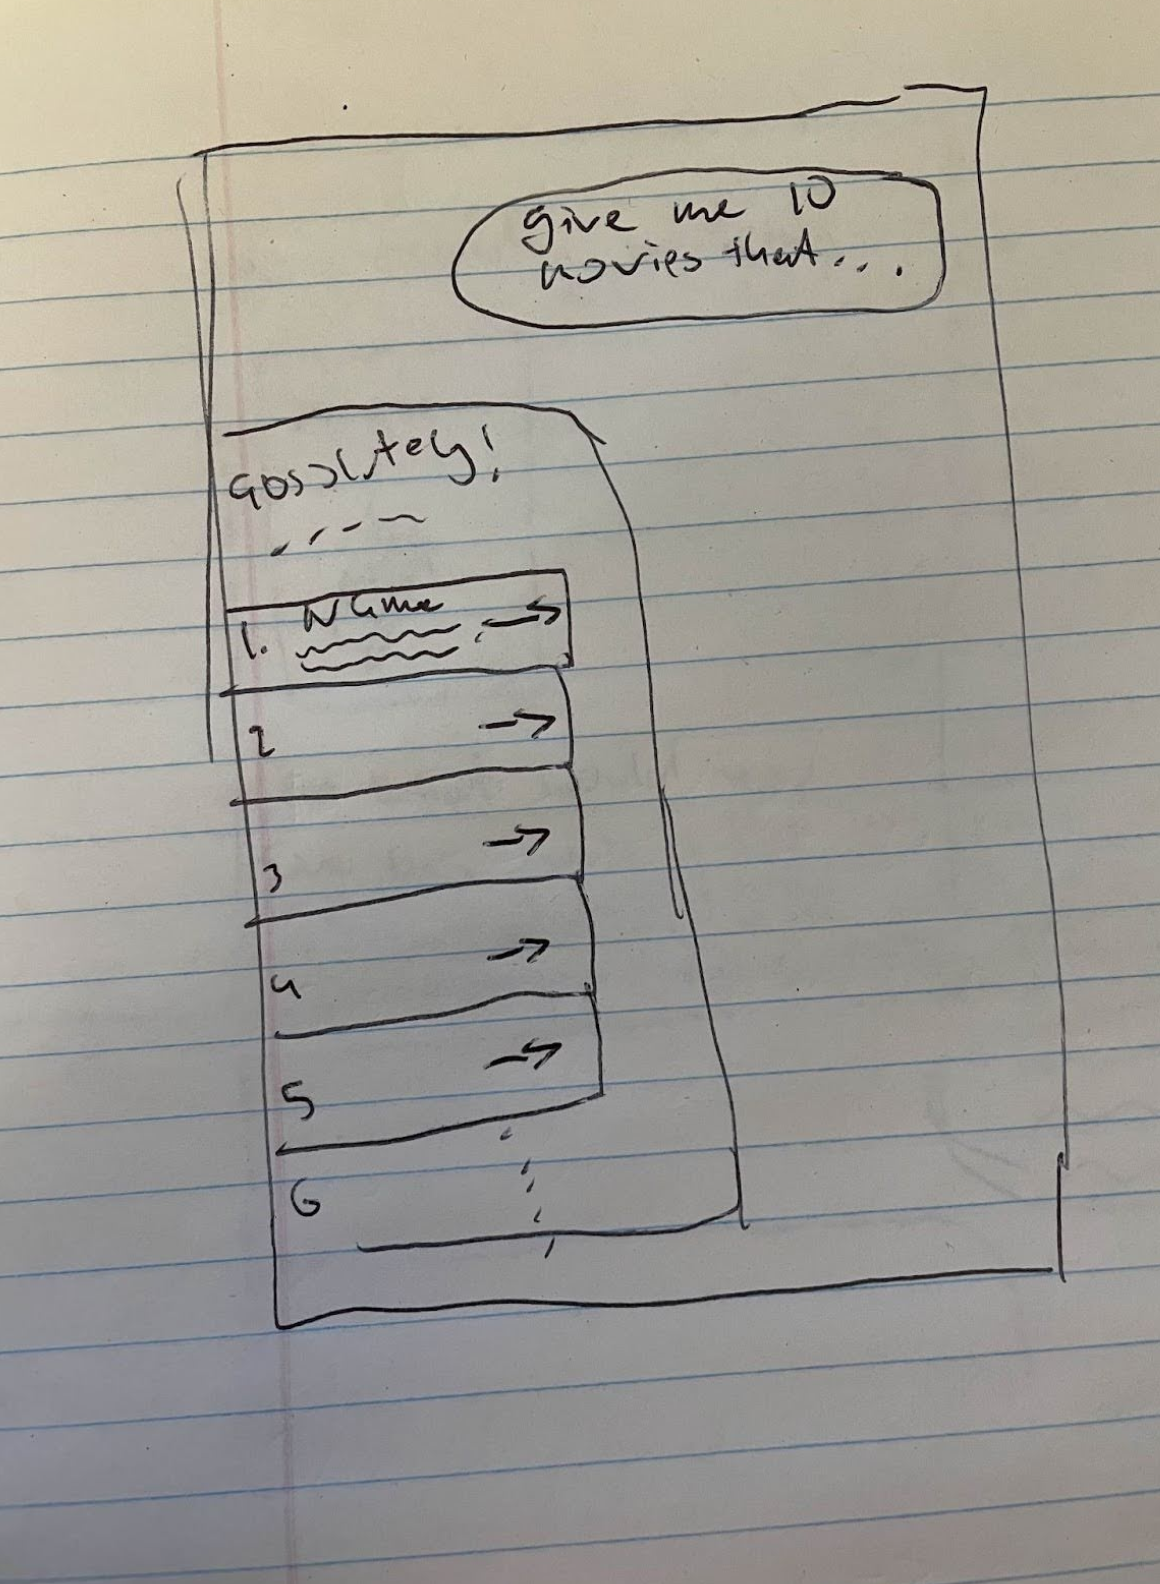 give me 10
movies that...
absolutely!
1. Name
2
3
4
5
6